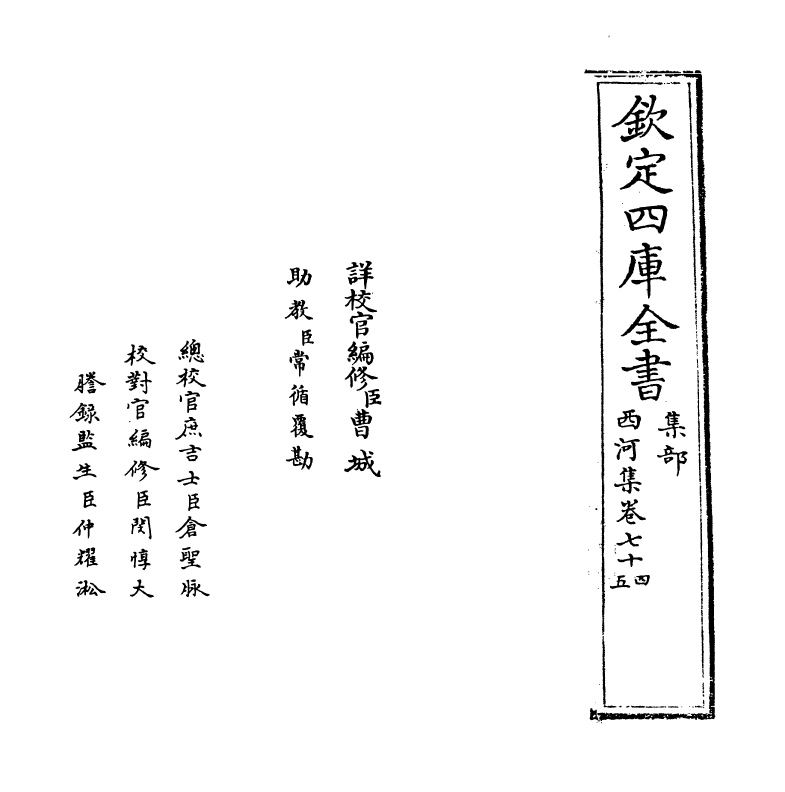 欽定四庫全書
集部
西河集卷七十四
五
詳校官編修臣曹城
助教臣常循覆勘
總校官庶吉士臣倉聖脉
校對官編修臣閔惇大
謄録監生臣仲耀淞